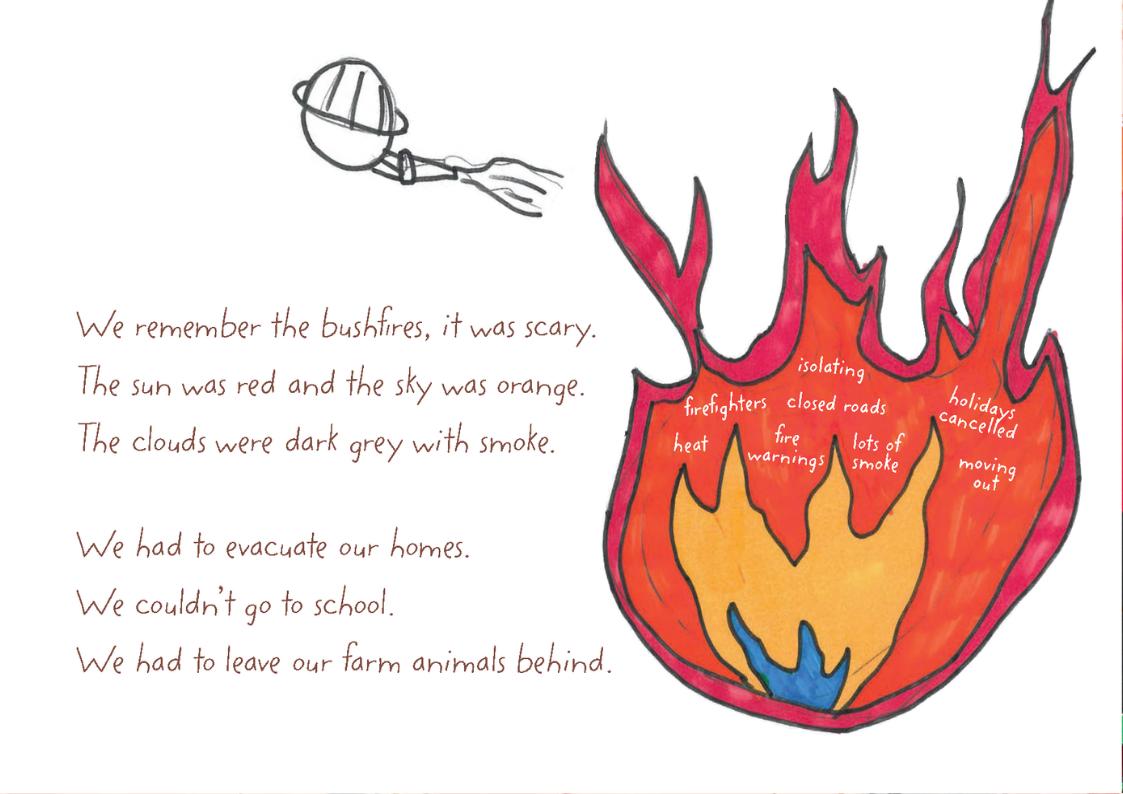 We remember the bushfires, it was scary.
The sun was red and the sky was orange.
The clouds were dark grey with smoke.
We had to evacuate our homes.
We couldn't go to school.
We had to leave our farm animals behind.
isolating
firefighters
closed roads
holidays
cancelled
heat
fire
warnings
lots of
smoke
moving
out